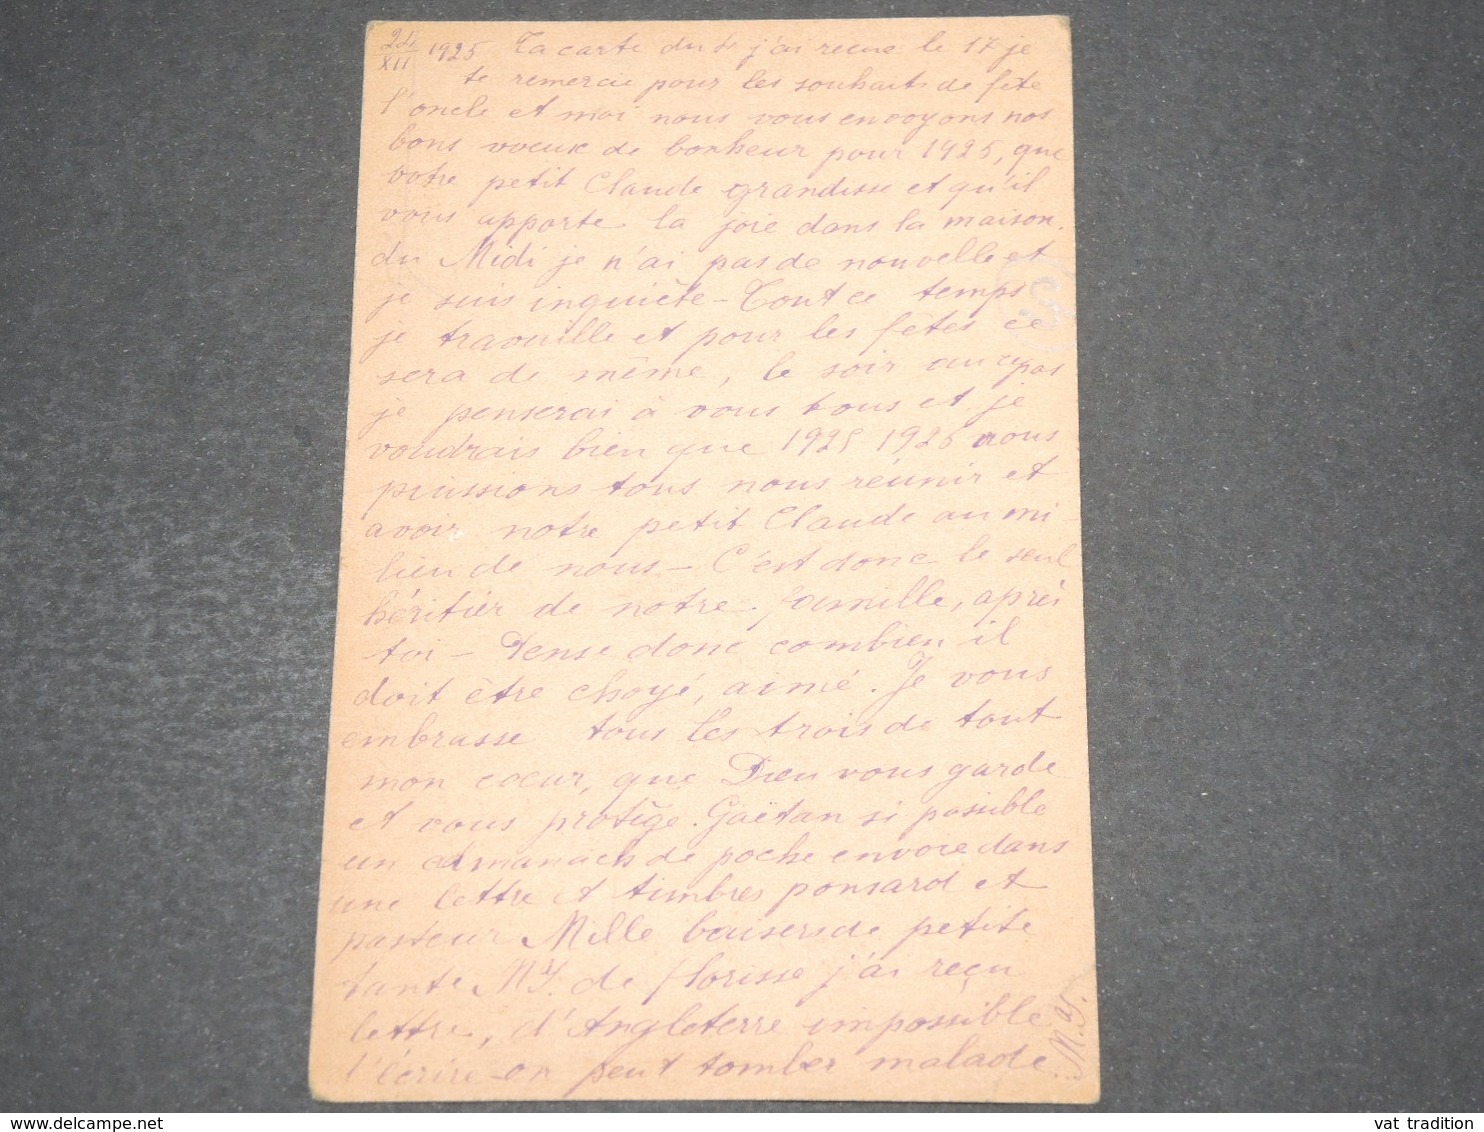 22/XII 1925 Ta carte du j'ai reçue le 17 je
te remercie pour les souhaits de fête
l'oncle et moi nous vous envoyons nos
bons voeux de bonheur pour 1925, que
votre petit Claude grandisse et qu'il
vous apporte la joie dans la maison.
du Midi je n'ai pas de nouvelle et
je suis inquiète - Tout ce temps
je travaille et pour les fêtes ce
sera de même, le soir
je penserai à vous tous et je
voudrais bien que 1925 1926 nous
puissions tous nous réunir et
avoir notre petit Claude au mi-
lieu de nous - C'est donc le seul
héritier de notre famille, après
toi - Pense donc combien il
doit être choyé, aimé. Je vous
embrasse tous les trois de tout
mon coeur, que Dieu vous garde
et vous protège. Gaëtan si possible
un almanach de poche envoie dans
une lettre et timbres ponsard et
pasteur Mille baisers de petite
tante MY. de florisse j'ai reçu
lettre, d'Angleterre impossible
l'écrire - on peut tomber malade
MY.
vat tradition